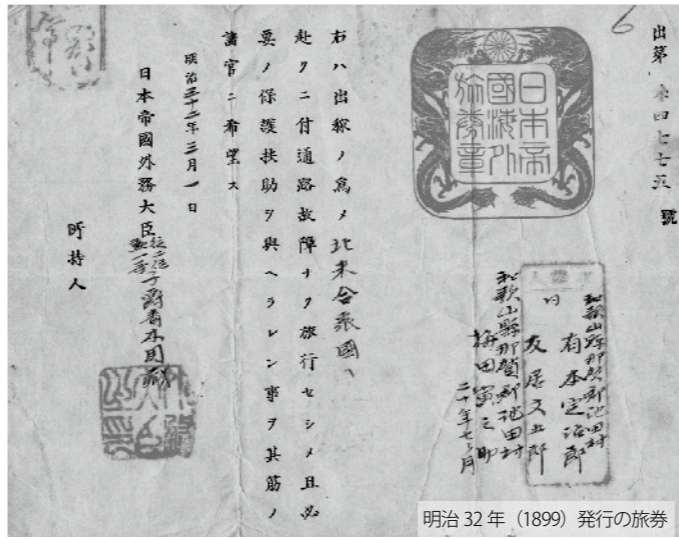 出第 四七七五 號
日本帝
國海外
旅券章
和歌山縣那賀郡池田村
有本定治郎
友居又五郎
和歌山縣那賀郡池田村
梅田寅之助
二十年七ヶ月
右ハ出稼ノ爲メ北米合衆國ヘ
赴クニ付通路故障ナク旅行セシメ且必
要ノ保護扶助ヲ與ヘラレン事ヲ其筋ノ
諸官ニ希望ス
明治三十二年三月一日
日本帝國外務大臣 子爵青木周蔵
所持人
明治32年（1899）発行の旅券